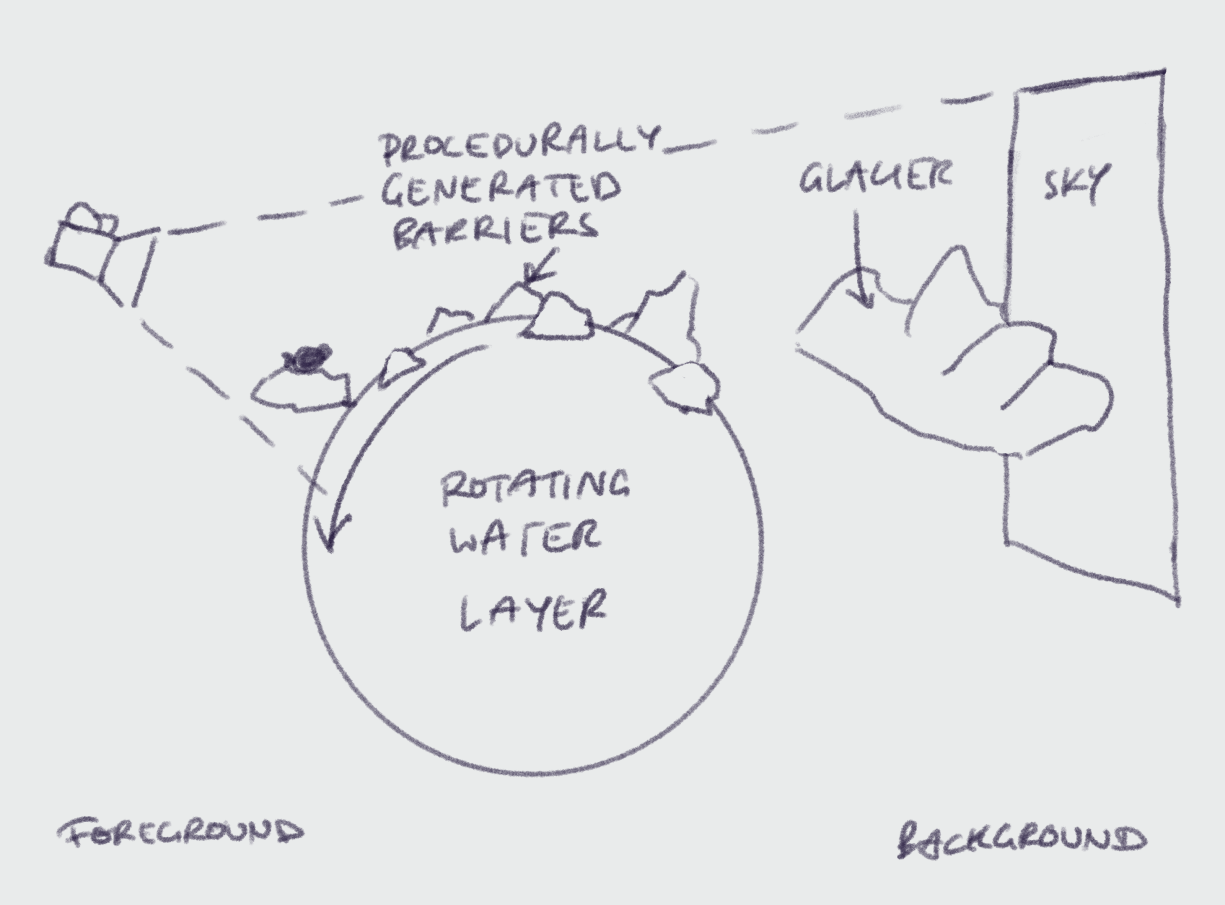 PROCEDURALLY
GENERATED
BARRIERS
GLACIER
SKY
ROTATING
WATER
LAYER
FOREGROUND
BACKGROUND